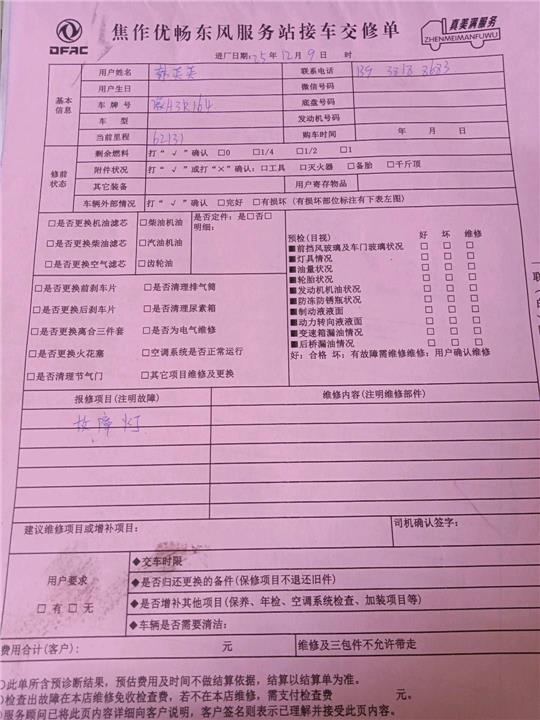 DFAC
焦作优畅东风服务站接车交修单
真美满服务
ZHENMEIMANFUWU
进厂日期:25年12月9日 时
基本信息
用户姓名 联系电话 139 3818 3683
用户生日 微信号码
车牌号 底盘号码
车型 发动机号码
当前里程 62131 购车时间 年 月 日
修前状态
剩余燃料 打“√”确认 □0 □1/4 □1/2 □1
附件状况 打“√”或打“×”确认:□工具 □灭火器 □备胎 □千斤顶
其它装备 用户寄存物品
车辆外部情况 打“√”确认 □完好 □有损坏(有损坏部位标注有下表左图)
□是否更换机油滤芯 □柴油机油
□是否更换柴油滤芯 □汽油机油
□是否更换空气滤芯 □齿轮油
是否定件:是□否□
明细:
□是否更换前刹车片 □是否清理排气筒
□是否更换后刹车片 □是否清理尿素箱
□是否更换离合三件套 □是否为电气维修
□是否更换火花塞 □空调系统是否正常运行
□是否清理节气门 □其它项目维修及更换
预检(目视) 好 坏 维修
■前挡风玻璃及车门玻璃状况 □ □ □
■灯具情况 □ □ □
■油量状况 □ □ □
■轮胎状况 □ □ □
■发动机机油状况 □ □ □
■防冻防锈瓶状况 □ □ □
■制动液液面 □ □ □
■动力转向液液面 □ □ □
■变速箱漏油情况 □ □ □
■后桥漏油情况 □ □ □
好:合格 坏:有故障需维修维修:用户确认维修
报修项目(注明故障) 维修内容(注明维修部件)
故障灯
建议维修项目或增补项目: 司机确认签字:
用户要求
□有□无
◆交车时限
◆是否归还更换的备件(保修项目不退还旧件)
◆是否增补其他项目(保养、年检、空调系统检查、加装项目等)
◆车辆是否需要清洁:
费用合计(客户): 元 维修及三包件不允许带走
此单所含预诊断结果,预估费用及时间不做结算依据,结算以结算单为准。
检查出故障在本店维修免收检查费,若不在本店维修,需支付检查费 元。
服务顾问已将此页内容详细向客户说明,客户签名则表示已理解并接受此页内容。